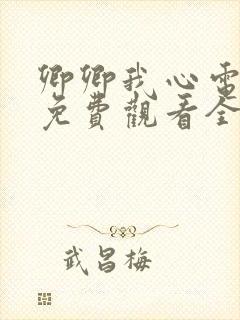 卿卿我心電
免費觀看全
武昌梅